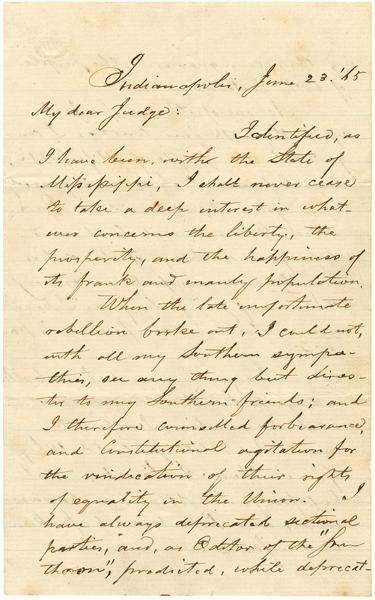 Indianapolis, June 23. '65
My dear Judge:
Identified, as
I have been, with the State of
Mississippi, I shall never cease
to take a deep interest in what-
ever concerns the liberty, the
prosperity, and the happiness of
its frank and manly population.
When the late unfortunate
rebellion broke out, I could not,
with all my Southern sympa-
thies, see any thing but disas-
ter to my Southern friends; and
I therefore counselled forbearance,
and Constitutional agitation for
the vindication of their rights
of equality in the Union. I
have always deprecated sectional
parties, and, as Editor of the
predicted, while deprecat-